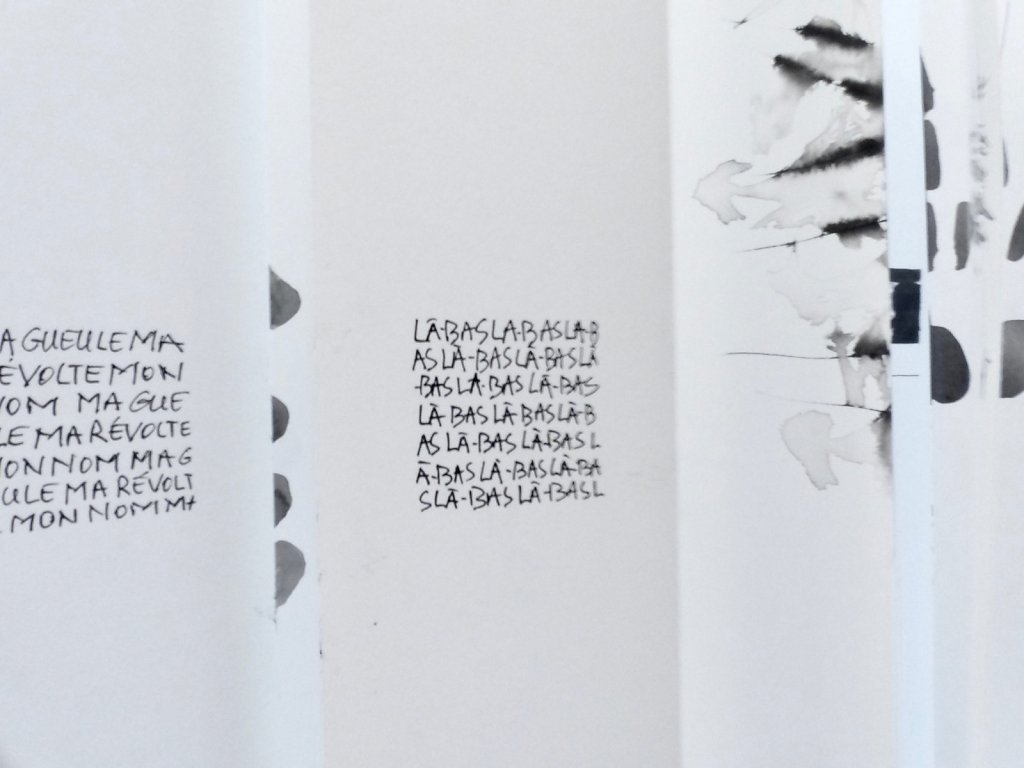 A GUEULE MA
ÉVOLTE MON
NOM MA GUE
LE MA RÉVOLTE
MON NOM MA G
EULE MA RÉVOLT
MON NOM MA
LÀ-BAS LA-BAS LA-B
AS LÀ-BAS LÀ-BAS LÀ
-BAS LÀ-BAS LÀ-BAS
LÀ BAS LÀ BAS LÀ-B
AS LÀ-BAS LÀ-BAS L
À-BAS LÀ-BAS LÀ-BA
S LÀ-BAS LÀ-BAS L